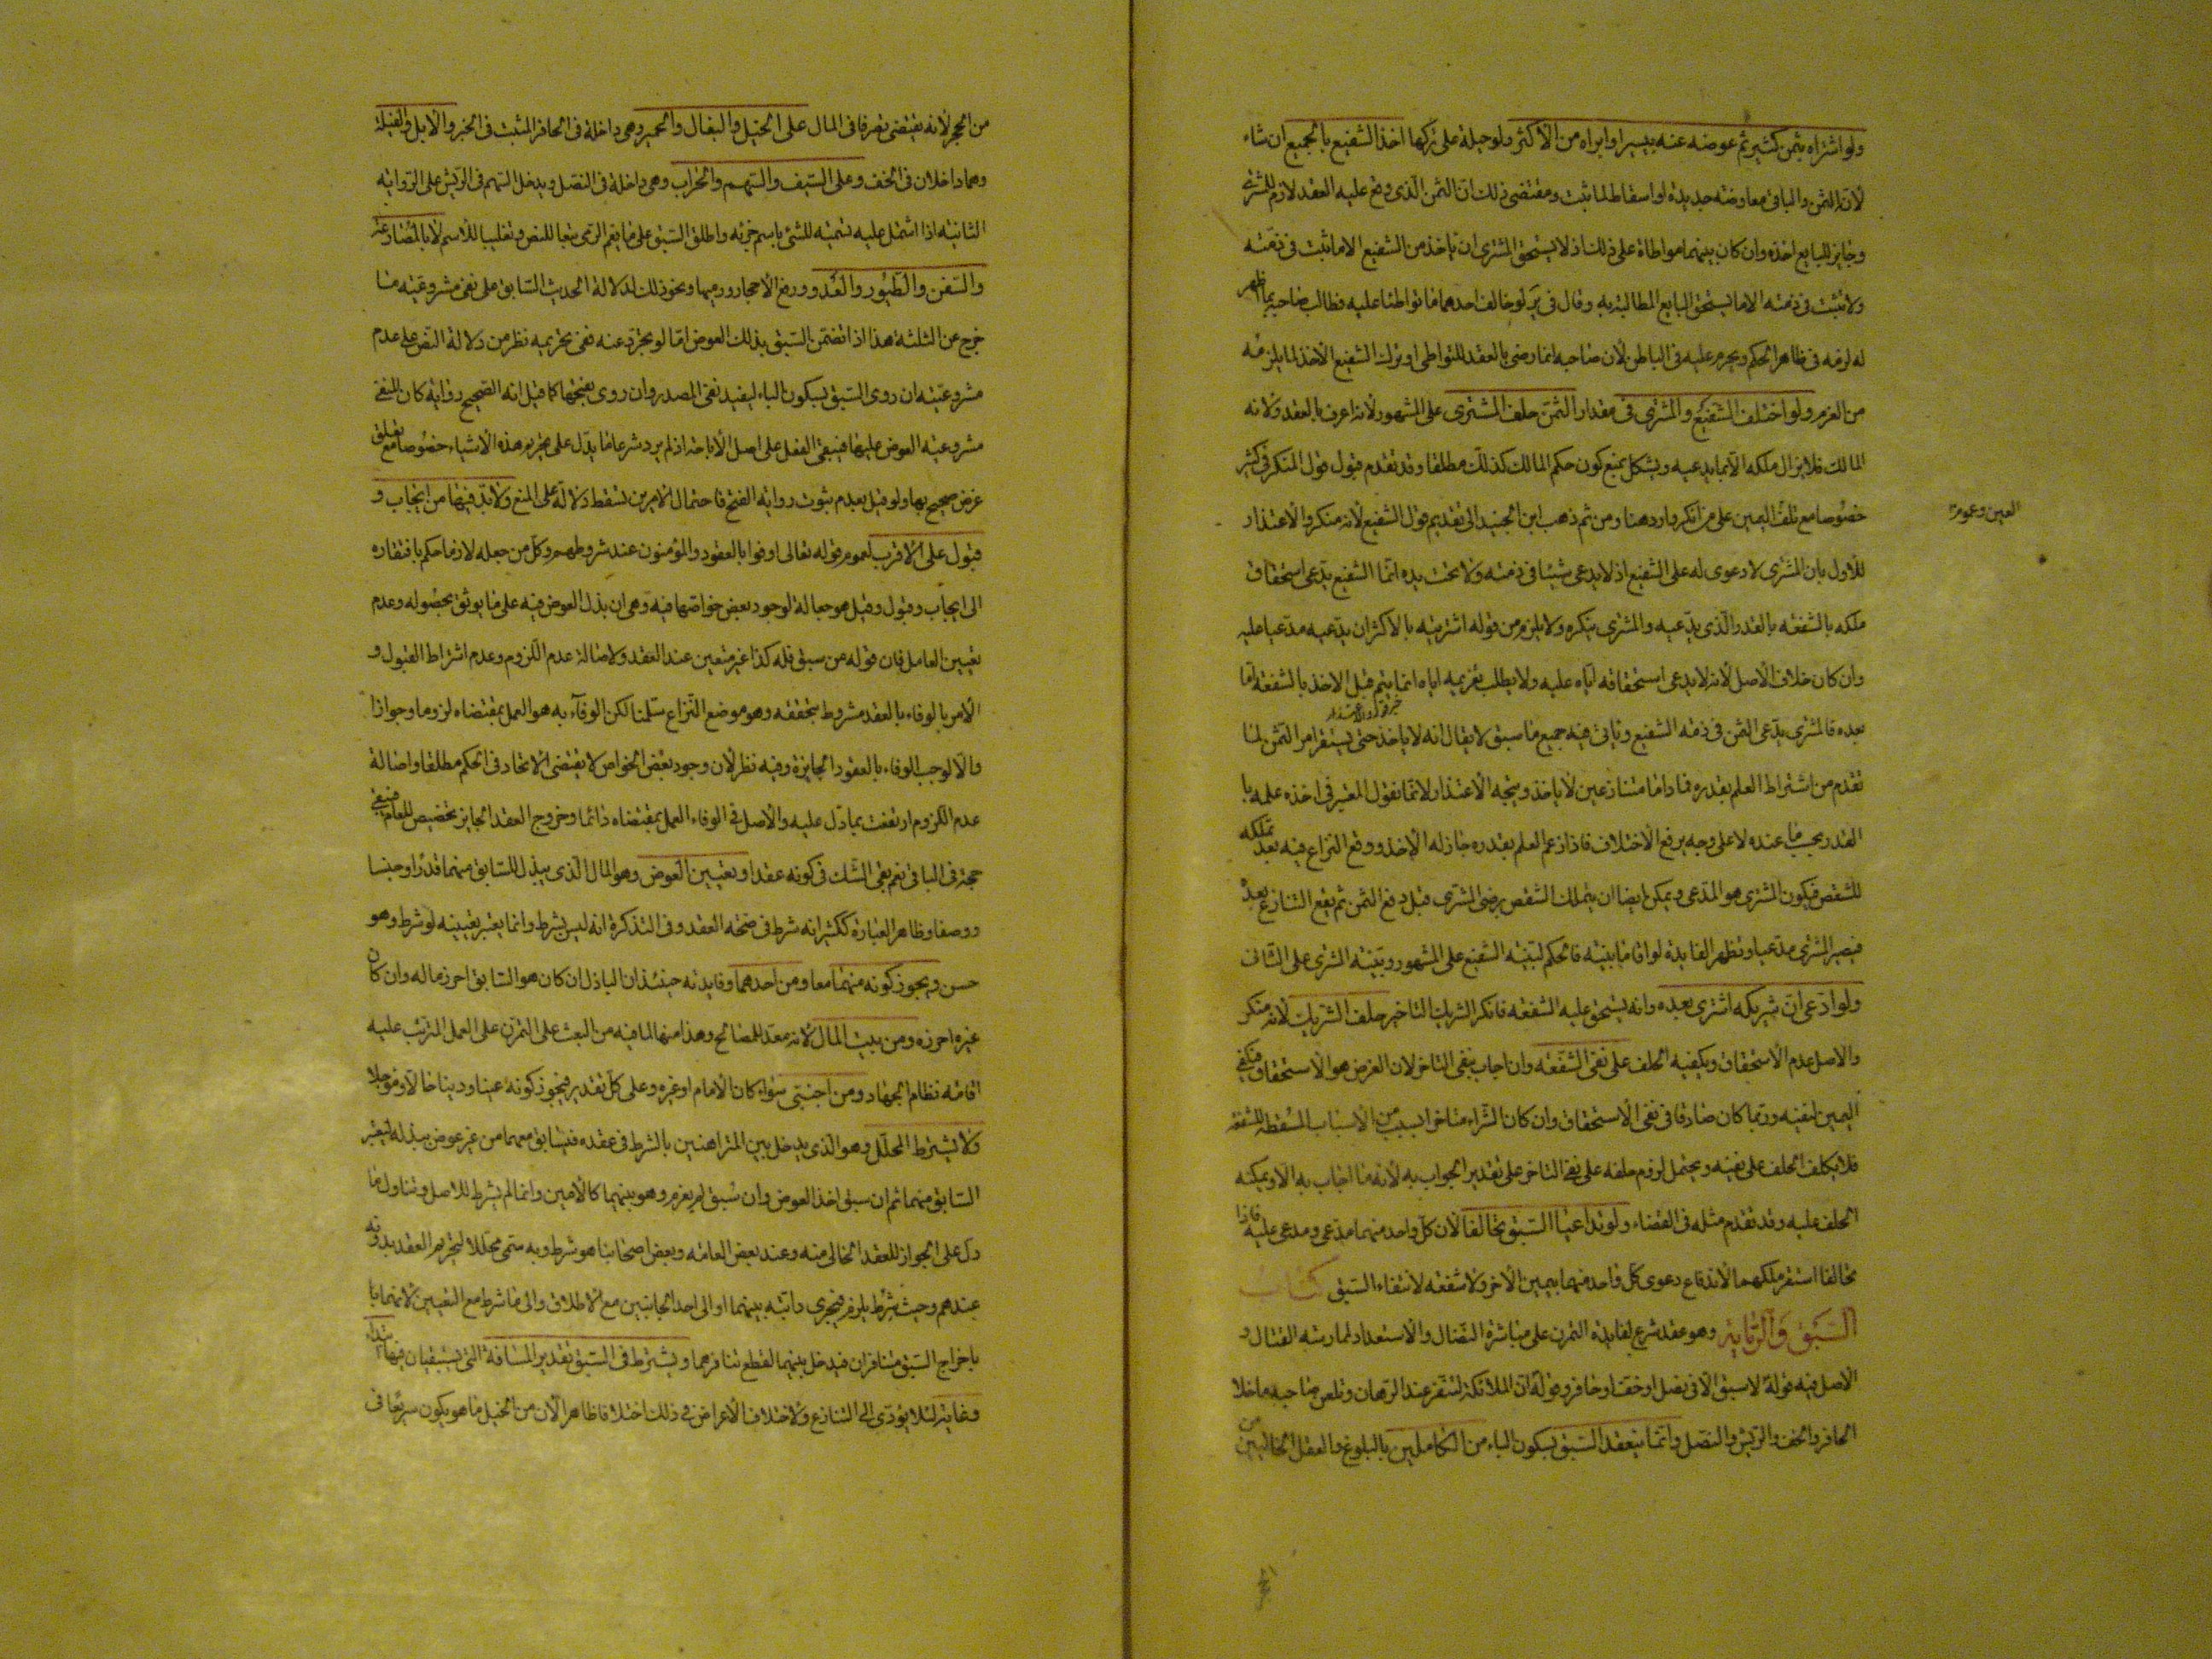 ولو اشتراه بثمن كثير ثم عوضه عنه بيسير او ابراه من الاكثر ولو حيلة على تركها اخذ الشفيع بالجميع ان شاء
لانه الثمن والباقى معاوضه جديدة او اسقاط لما ثبت ومقتضى ذلك ان الثمن الذى وقع عليه العقد لازم للمشترى
وجايز للبايع اخذه وان كان بينهما مواطاة على ذلك اذ لا يستحق المشترى ان ياخذ من الشفيع الا ما ثبت فى ذمته
ولا تثبت فى ذمته الا ما يستحق البايع المطالبة به وقال فى ير لو خالف احدهما ما تواطئا عليه فطالب صاحبه بما ظهر
له لزمه فى ظاهر الحكم ويحرم عليه فى الباطن لان صاحبه انما رضى بالعقد للتواطى او بترك الشفيع الاخذ لما يلزمه
من الغرم ولو اختلف الشفيع والمشترى فى مقدار الثمن حلف المشترى على المشهور لانه اعرف بالعقد ولانه
المالك فلا يزال ملكه الا بما يدعيه ويشكل بمنع كون حكم المالك كذلك مطلقا وقد تقدم قبول قول المنكر فى كثير
خصوصا مع تلف العين على من انكر وارد هنا ومن ثم ذهب ابن الجنيد الى تقديم قول الشفيع لانه منكر والاعتذار
العين وعموم
للاول بان المشترى لا دعوى له على الشفيع اذ لا يدعى شيئا فى ذمته ولا تحت يده انما الشفيع يدعى استحقاق
ملكه بالشفعه بالقدر الذى يدعيه والمشترى ينكره ولا يلزم من قوله اشتريته بالاكثر ان يدعيه مدعيا عليه
وان كان خلاف الاصل لانه لا يدعى استحقاقه اياه عليه ولا يطلب تغريمه اياه انما يتم قبل الاخذ بالشفعه اما
بعده فالمشترى يدعى الثمن فى ذمه الشفيع وياتى فيه جميع ما سبق لا يقال انه لا ياخذ حتى يستقر امر الثمن لما
تقدم من اشتراط العلم بقدره فما داما متنازعين لا ياخذ ويتجه الاعتذار لانا نقول المعتبر فى اخذه علمه با
لقدر بحسب ما عنده لا على وجه يرفع الاختلاف فاذا زعم العلم بقدره جاز له الاخذ ووقع النزاع فيه بعد تملكه
للشقص فيكون المشترى هو المدعى ويمكن ايضا ان يتملك الشقص برضى المشترى قبل دفع الثمن ثم يقع التنازع بعد
فيصير المشترى مدعيا وتظهر الفايدة لو اقاما بينه فالحكم لبينه الشفيع على المشهور وبينه المشترى على الثانى
ولو ادعى ان شريكه اشترى بعده وانه يستحق عليه الشفعه فانكر الشريك التاخير حلف الشريك لانه منكر
والاصل عدم الاستحقاق ويكفيه الحلف على نفى الشفعه وان اجاب بنفى التاخر لان الغرض هو الاستحقاق فيكفى
اليمين لنفيه وربما كان صادقا فى نفى الاستحقاق وان كان الشراء متاخرا لسبب من الاسباب المسقطه للشفعه
فلا يكلف الحلف على نفيه ويحتمل لزوم حلفه على نفى التاخر على تقدير الجواب به لانه ما اجاب به الا ويمكنه
الحلف عليه وقد تقدم مثله فى القضاء ولو تداعيا السبق تحالفا لان كل واحد منهما مدعى ومدعى عليه فاذا
تحالفا استقر ملكهما لاندفاع دعوى كل واحد منهما بيمين الاخر ولا شفعه لانتفاء السبق كتاب
السبق والرماية وهو عقد شرع لفايده التمرن على مباشرة النضال والاستعداد لممارسه القتال و
الاصل فيه قوله لا سبق الا فى نصل او خف او حافر وقوله ان الملائكة لتنفر عند الرهان وتلعن صاحبه ما خلا
الحافر والخف والريش والنصل وانما ينعقد السبق بسكون الباء من الكاملين بالبلوغ والعقل الخاليين من
من الحجر لانه يقتضى تصرفا فى المال على الخيل والبغال والحمير وهى داخلة فى الحافر المثبت فى الخبر والابل والفيلة
وهما داخلان فى الخف وعلى السيف والسهم والحراب وهى داخلة فى النصل ويدخل السهم فى الريش على الروايه
الثانيه اذا اشتمل عليه تسميه للشئ باسم جزئه واطلق السبق على ما يعم الرمى تبعا للنص وتغليبا للاسم لا بالمصارعة
والسفن والطيور والعدو ورفع الاحجار ورميها ونحو ذلك لدلالة الحديث السابق على نفى مشروعيته ما
خرج عن الثلثة هذا اذا تضمن السبق بذلك العوض اما لو تجرد عنه ففى تحريمه نظر من دلالة النص على عدم
مشروعيته ان روى السبق بسكون الباء ليفيد نفى المصدر وان روى بفتحها كما قيل انه الصحيح روايه كان المنفى
مشروعيه العوض عليها فيبقى الفعل على اصل الاباحه اذ لم يرد شرعا ما يدل على تحريم هذه الاشياء خصوصا مع تعلق
غرض صحيح بها ولو قيل بعدم ثبوت روايه الفتح فاحتمال الامرين تسقط دلالة على المنع ولا بد فيها من ايجاب و
قبول على الاقرب لعموم قوله تعالى اوفوا بالعقود والمؤمنون عند شروطهم وكل من جعله لازما حكم بافتقاره
الى ايجاب وقبول وقيل هو جعاله لوجود بعض خواصها فيه وهى ان بذل العوض فيه على ما يوثق بحصوله وعدم
تعيين العامل فان قوله من سبق فله كذا غير متعين عند العقد ولاصالة عدم اللزوم وعدم اشتراط القبول و
الامر بالوفاء بالعقد مشروط بتحققه وهو موضع النزاع سلمنا لكن الوفاء به هو العمل بمقتضاه لزوما وجوازا
والا لوجب الوفاء بالعقود الجايزة وفيه نظر لان وجود بعض الخواص لا يقتضى الاتحاد فى الحكم مطلقا واصالة
عدم اللزوم ارتفعت بما دل عليه والاصل فى الوفاء العمل بمقتضاه دائما وخروج العقد الجايز تخصيص للعام فيبقى
حجة فى الباقى نعم يبقى الشك فى كونه عقدا وتعيين العوض وهو المال الذى يبذل للسابق منهما قدرا وجنسا
ووصفا وظاهر العبارة ككثير انه شرط فى صحة العقد وفى التذكرة انه ليس بشرط وانما يعتبر تعيينه لو شرط وهو
حسن ويجوز كونه منهما معا ومن احدهما وفايدته حينئذ ان الباذل ان كان هو السابق احرز ماله وان كان
غيره احرزه ومن بيت المال لانه معد للمصالح وهذا منها لما فيه من البعث على التمرن على العمل المترتب عليه
اقامه نظام الجهاد ومن اجنبى سواء كان الامام او غيره وعلى كل تقدير فيجوز كونه عينا ودينا حالا ومؤجلا
ولا يشترط المحلل وهو الذى يدخل بين المتراهنين بالشرط فى عقده فيسابق معهما من غير عوض يبذله ليعتبر
السابق منهما ثم ان سبق اخذ العوض وان سُبق لم يغرم وهو بينهما كالامين وانما لم يشترط للاصل وتناول ما
دل على الجواز للعقد الخالى منه وعند بعض العامه وبعض اصحابنا هو شرط وبه سمى محللا لتحريم العقد بدونه
عندهم وحيث شرط يلزم فيجرى دابته بينهما او الى احد الجانبين مع الاطلاق والى ما شرط مع التعيين لانهما با
باخراج السبق متنافران فيدخل بينهما لقطع تنافرهما ويشترط فى السبق تقدير المسافة التى يستبقان فيها ابتداء
وغاية لئلا يؤدى الى التنازع ولاختلاف الاغراض فى ذلك اختلافا ظاهرا لان من الخيل ما هو يكون سريعا فى